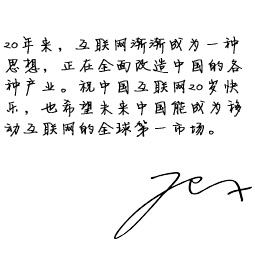 20年来，互联网渐渐成为一种
思想，正在全面改造中国的各
种产业。祝中国互联网20岁快
乐，也希望未来中国能成为移
动互联网的全球第一市场。